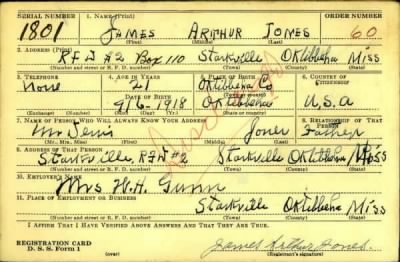 SERIAL NUMBER 1. NAME (Print) ORDER NUMBER
1801 JAMES ARTHUR JONES 60
(First) (Middle) (Last)
2. ADDRESS (Print)
RFD #2 Box 110 Starkville Oktibbeha Miss
(Number and street or R. F. D. number) (Town) (County) (State)
3. TELEPHONE 4. AGE IN YEARS 5. PLACE OF BIRTH 6. COUNTRY OF CITIZENSHIP
None 21 Oktibbeha Co
DATE OF BIRTH (Town or county)
9/6-1918 Oktibbeha U.S.A
(Exchange) (Number) (Mo.) (Day) (Yr.) (State or country)
7. NAME OF PERSON WHO WILL ALWAYS KNOW YOUR ADDRESS 8. RELATIONSHIP OF THAT PERSON
Mr Jones Father
(Mr., Mrs., Miss) (First) (Middle) (Last)
9. ADDRESS OF THAT PERSON
Starkville, RFD #2 Starkville Oktibbeha Miss
(Number and street or R. F. D. number) (Town) (County) (State)
10. EMPLOYER'S NAME
Mrs W.H. Gunn
11. PLACE OF EMPLOYMENT OR BUSINESS
Starkville Oktibbeha Miss
(Number and street or R. F. D. number) (Town) (County) (State)
I AFFIRM THAT I HAVE VERIFIED ABOVE ANSWERS AND THAT THEY ARE TRUE.
REGISTRATION CARD
D. S. S. Form 1 (over) James Arthur Jones
(Registrant's signature)